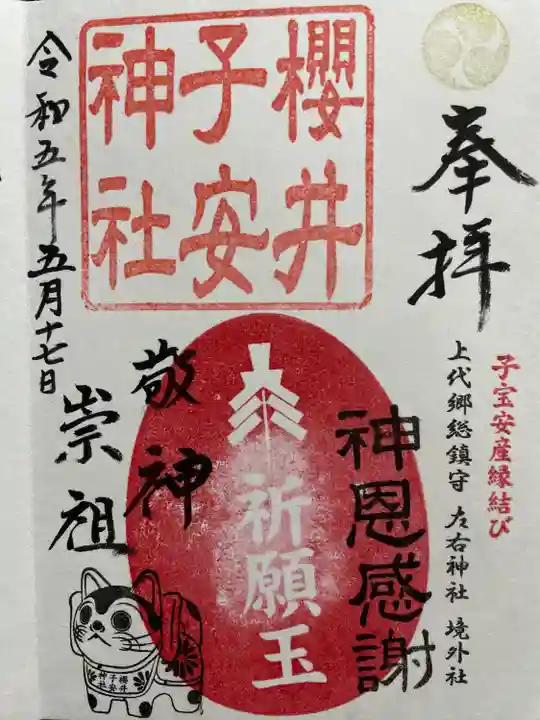 奉拝
子宝安産縁結び
上代郷総鎮守 左右神社 境外社
櫻井
子安
神社
神恩感謝
祈願玉
敬神
崇祖
令和五年五月十七日
櫻井
子安
神社